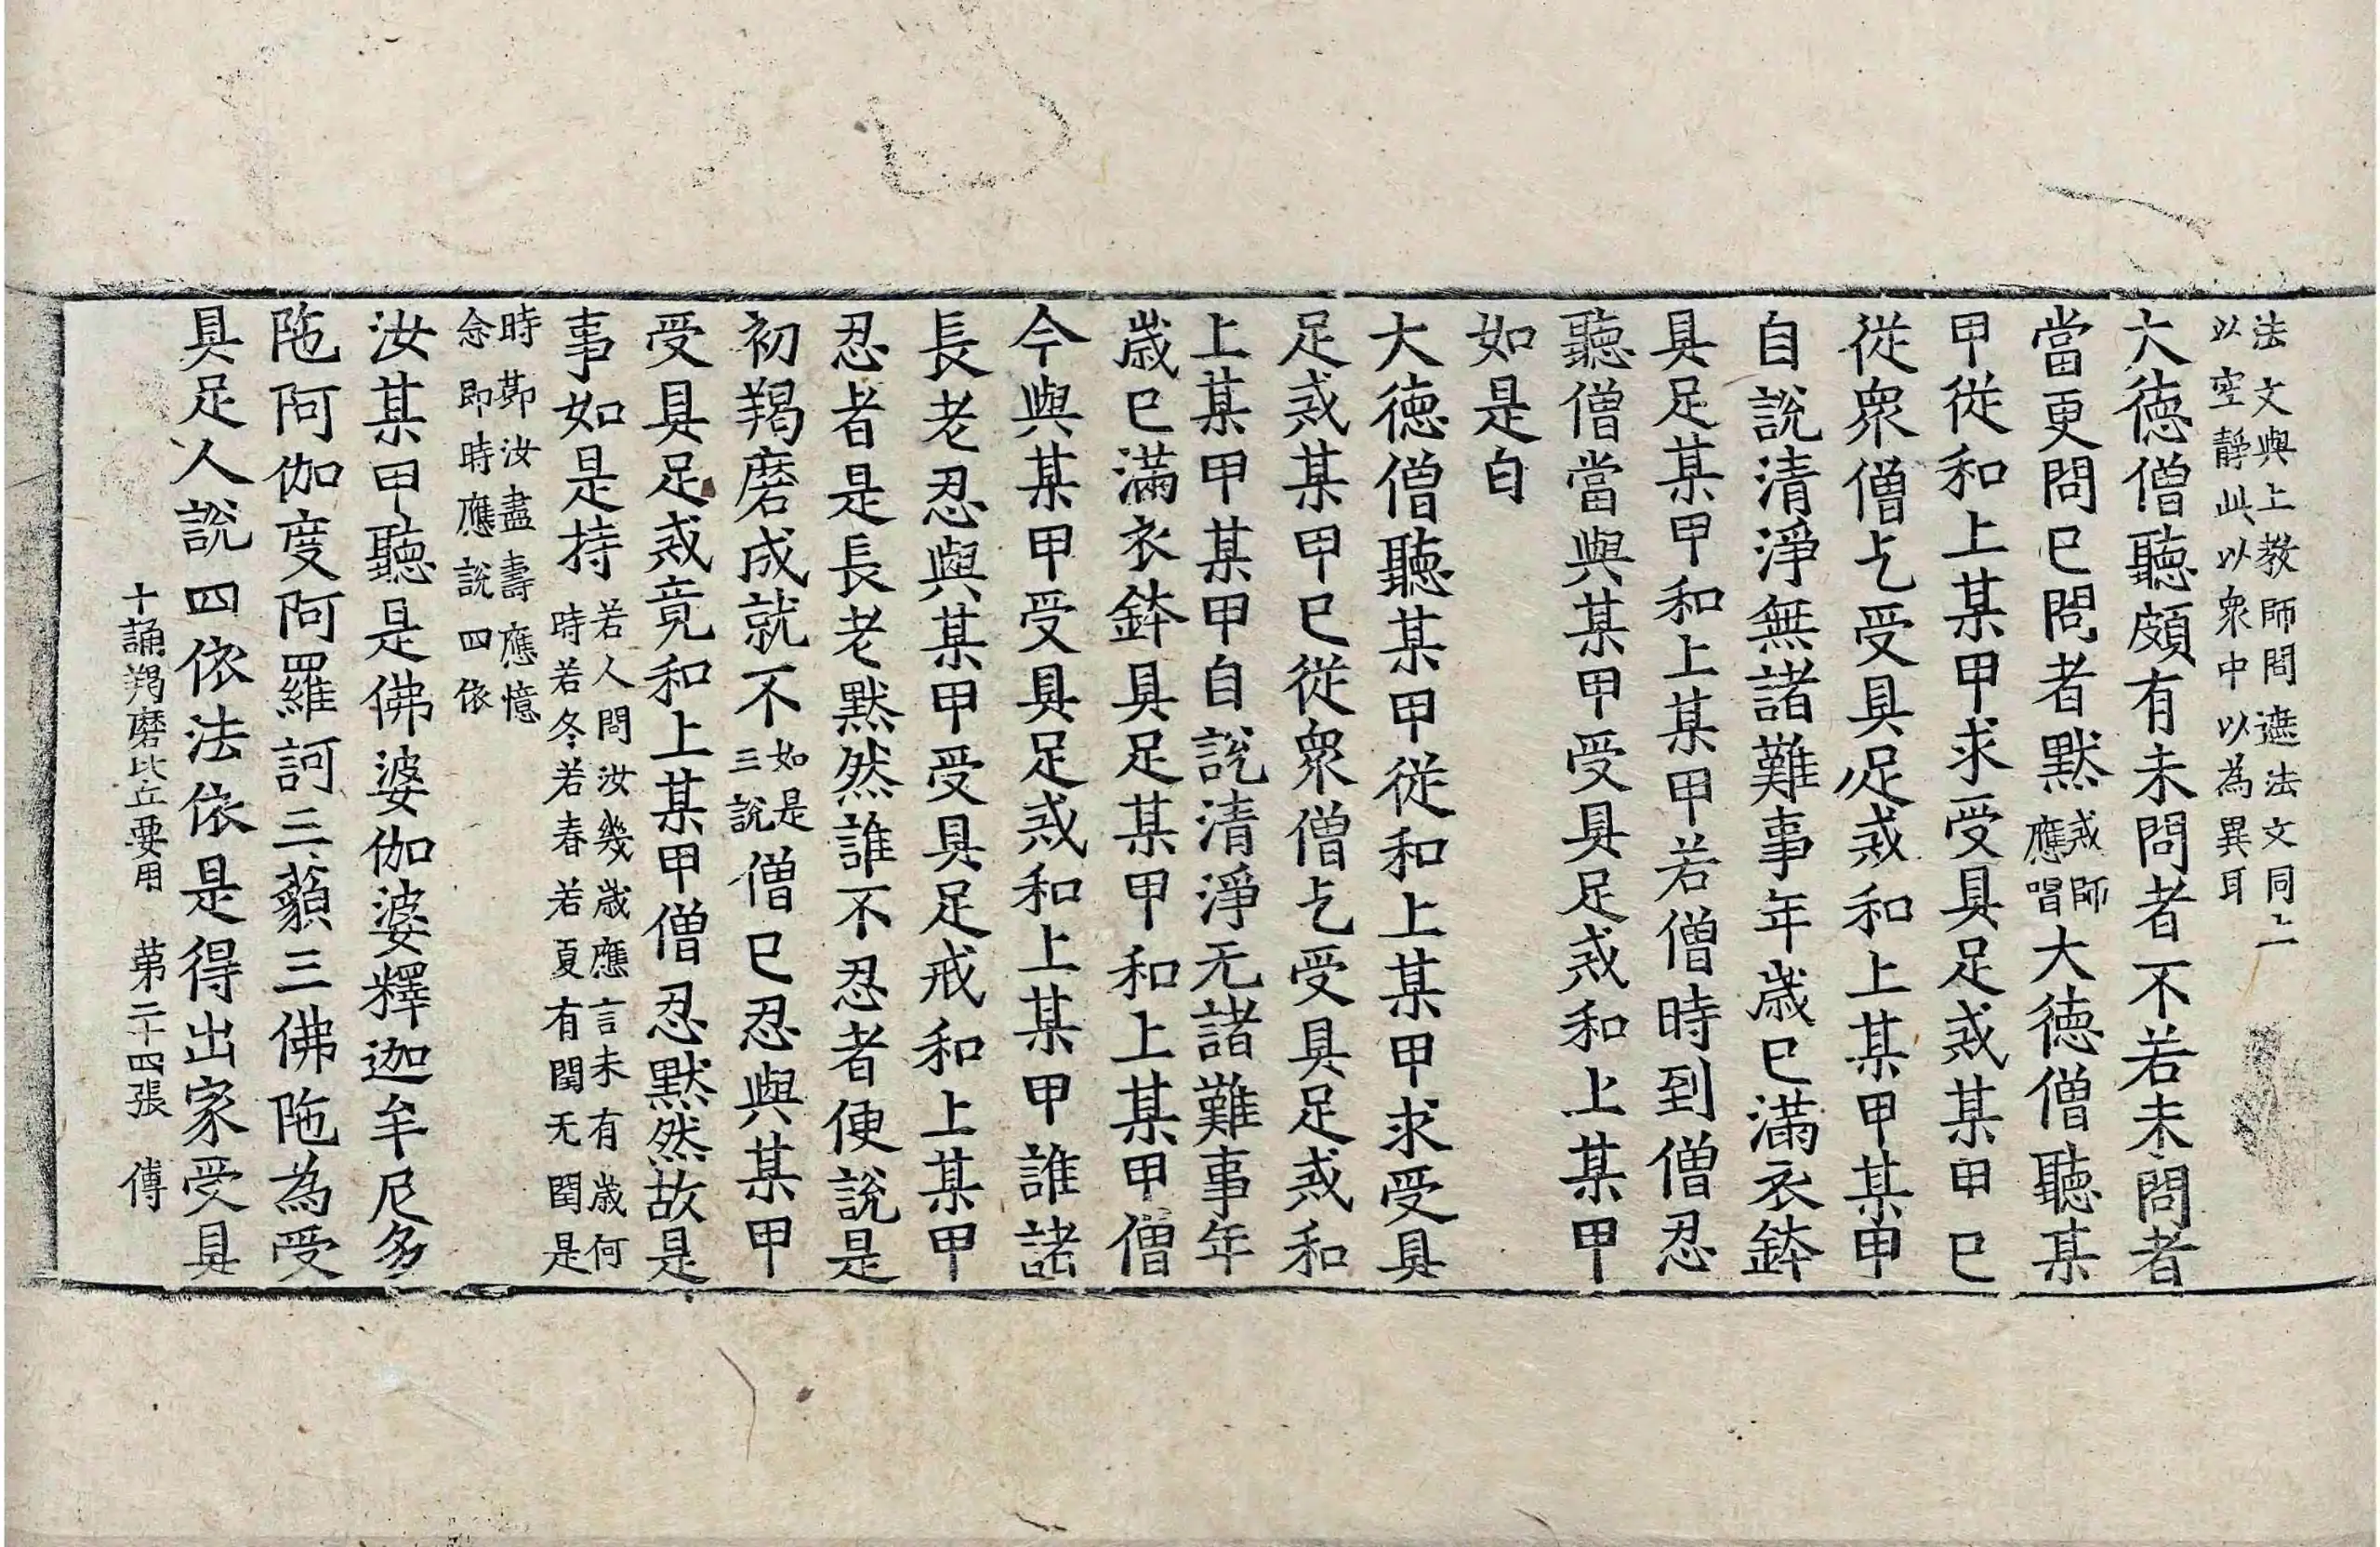 法文與上教師問遮法文同上
以空静此以衆中以為異耳
大徳僧聽頗有未問者不若未問者
當更問已問者黙戒師應唱大徳僧聽某
甲従和上某甲求受具足戒某甲已
従衆僧乞受具足戒和上某甲某甲
自說清淨無諸難事年歳已滿衣鉢
具足某甲和上某甲若僧時到僧忍
聽僧當與某甲受具足戒和上某甲
如是白
大徳僧聽某甲従和上某甲求受具
足戒某甲已従衆僧乞受具足戒和
上某甲某甲自說清淨无諸難事年
歳已滿衣鉢具足某甲和上某甲僧
今與某甲受具足戒和上某甲誰諸
長老忍與某甲受具足戒和上某甲
忍者是長老黙然誰不忍者便說是
初羯磨成就不如是三說僧已忍與某甲
受具足戒竟和上某甲僧忍黙然故是
事如是持若人問汝幾歳應言未有歳何時若冬若春若夏有閏无閏是
時節汝盡壽應憶
念即時應說四依
汝某甲聽是佛婆伽婆釋迦牟尼多
陁阿伽度阿羅訶三藐三佛陁為受
具足人說四依法依是得出家受具
十誦羯磨比丘要用 苐二十四張 傅